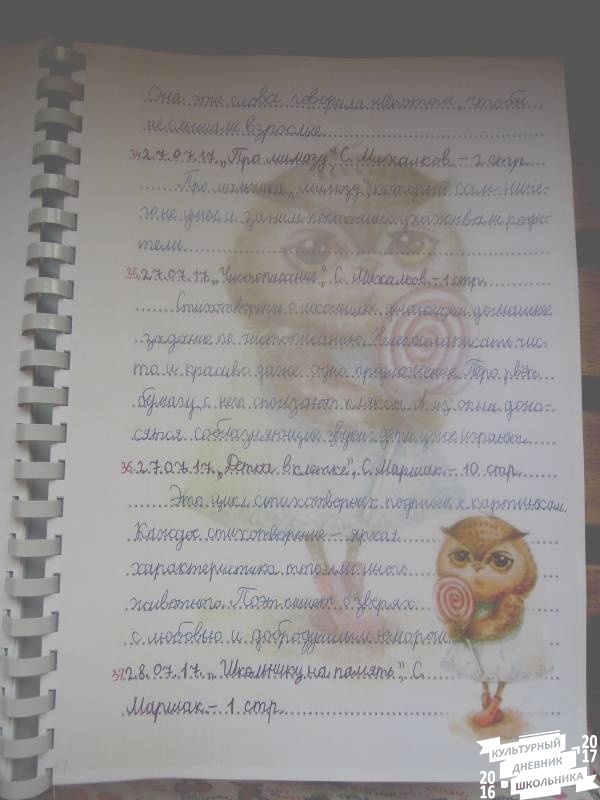 Она эти слова говорила шёпотом, чтобы
не слышали взрослые.
34. 27.07.17. „Про мимозу", С. Михалков. – 2 стр.
Про мальчика „мимозу", который сам ниче-
го не умел и за ним постоянно ухаживали роди-
тели.
35. 27.07.17. „Чистописание", С. Михалков. – 1 стр.
Стихотворение о школьнике, делающем домашнее
задание по чистописанию. Нелегко писать чис-
то и красиво даже одно предложение. Перо рвёт
бумагу, с него сползают кляксы. А из окна доно-
сятся соблазняющие звуки: дети уже играют.
36. 27.07.17. „Детки в клетке", С. Маршак. – 10 стр.
Это цикл стихотворных подписей к картинкам.
Каждое стихотворение – яркая
характеристика того или иного
животного. Поэт пишет о зверях
с любовью и добродушным юмором.
37. 28.07.17. „Школьнику на память", С.
Маршак. – 1 стр.
КУЛЬТУРНЫЙ
ДНЕВНИК
ШКОЛЬНИКА
2016
2017